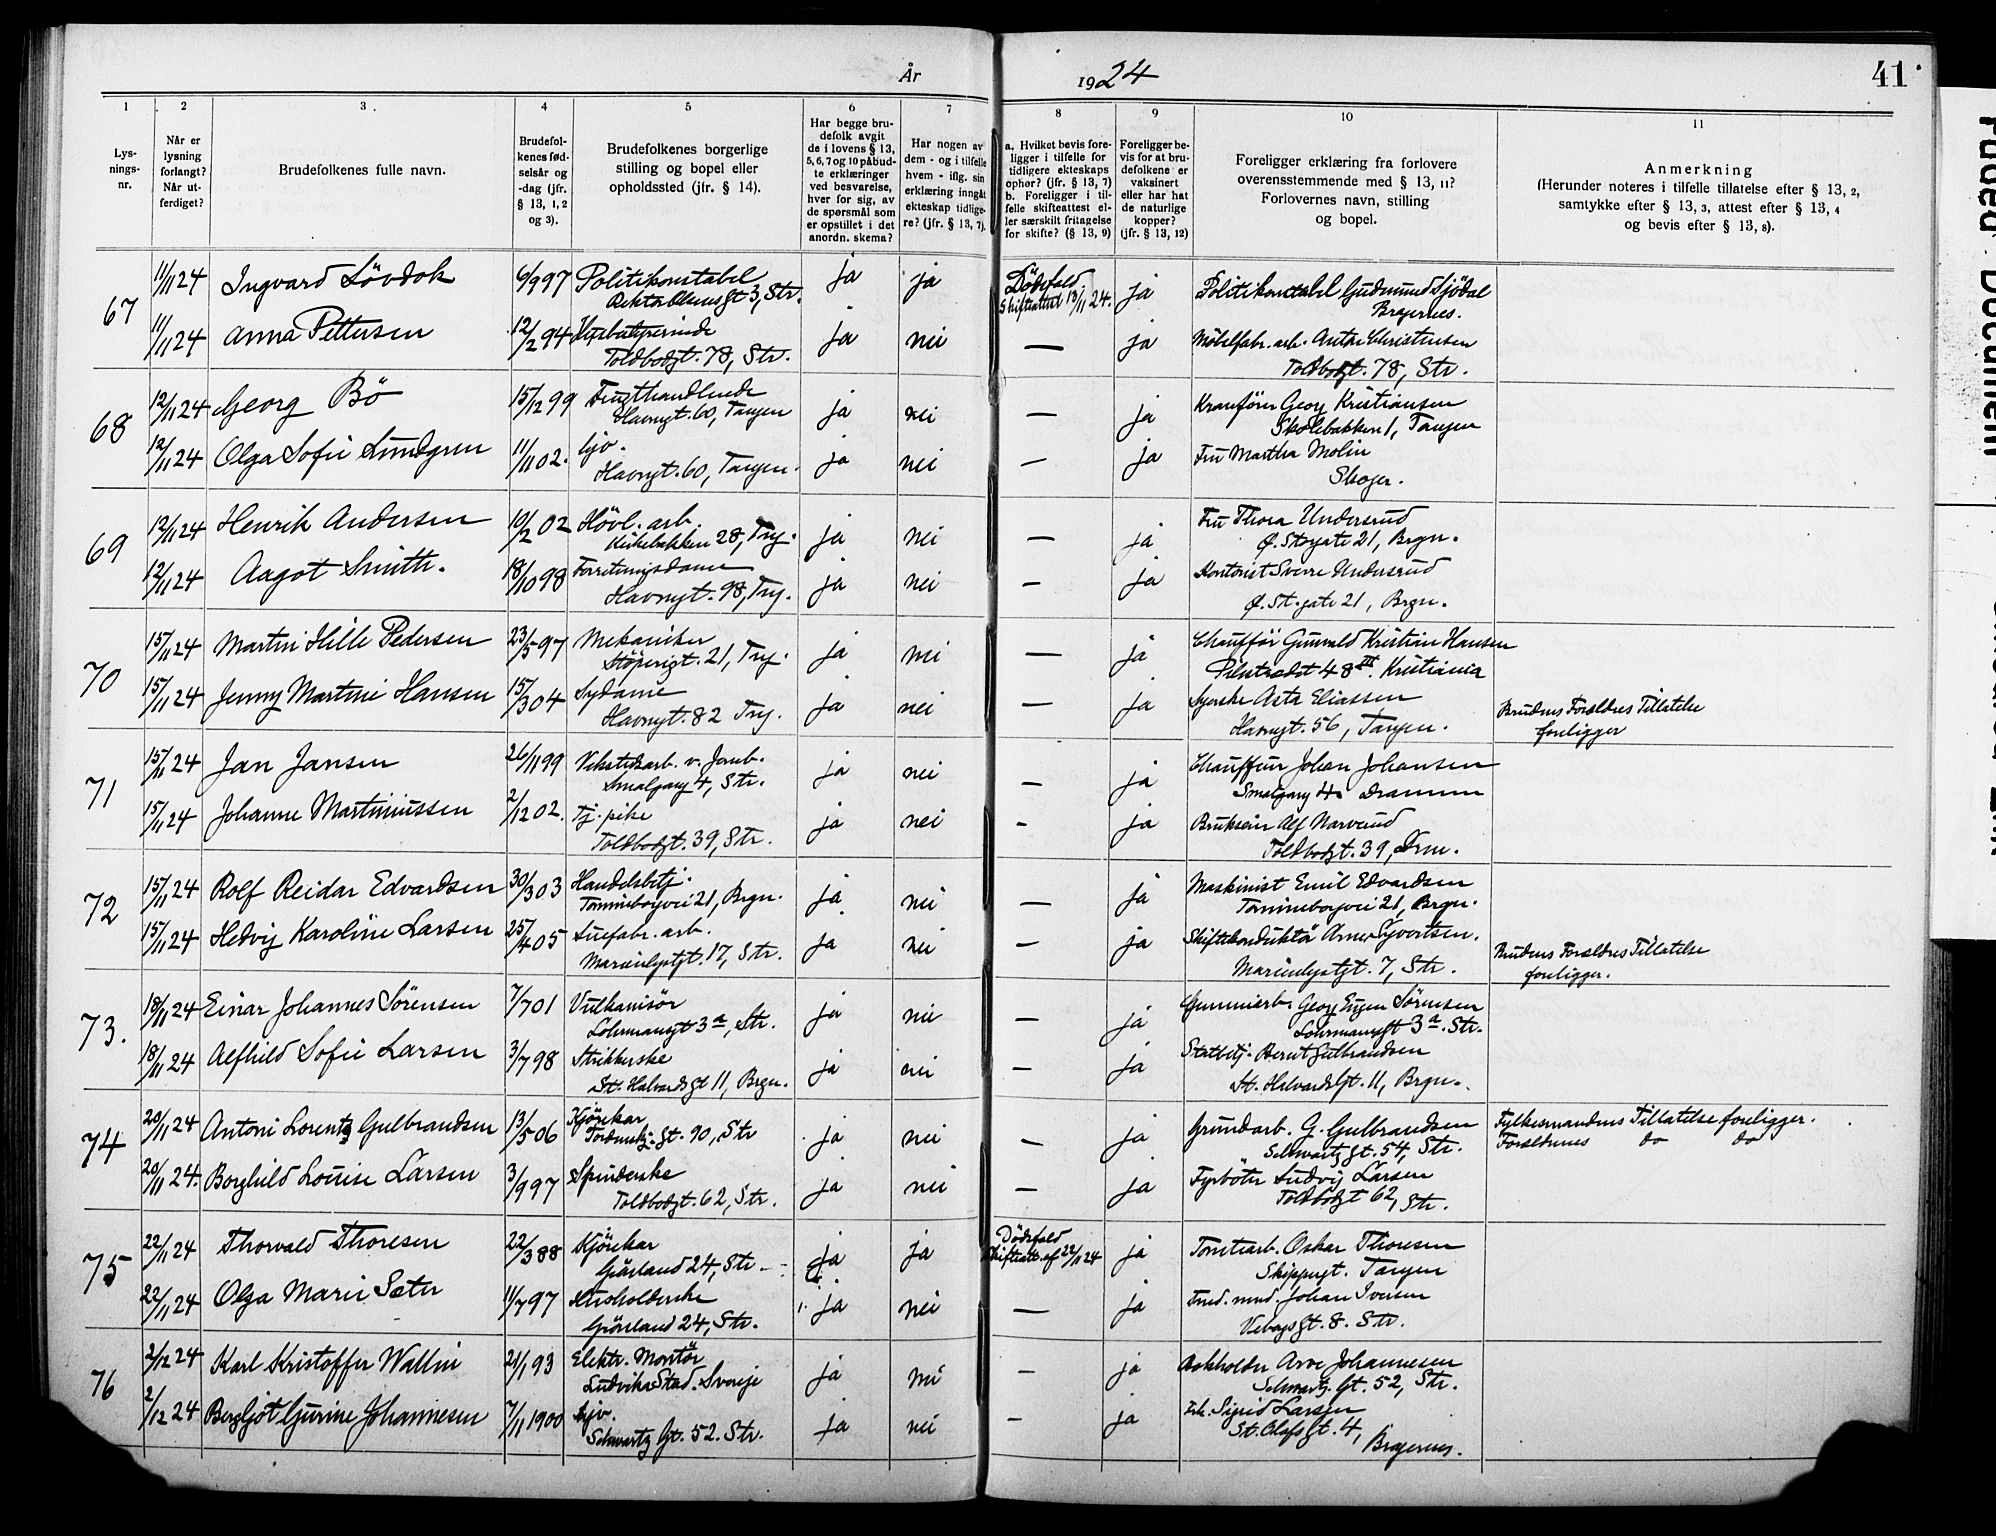 År 1924
41
1 2 3 4 5 6 7 8 9 10 11
Lys-
nings-
nr.
Når er
lysning
forlangt?
Når ut-
ferdiget?
Brudefolkenes fulle navn.
Brudefol-
kenes fød-
selsår og
-dag (jfr.
§ 13, 1, 2
og 3).
Brudefolkenes borgerlige
stilling og bopel eller
opholdssted (jfr. § 14).
Har begge bru-
defolk avgit
de i lovens § 13,
5, 6, 7 og 10 påbud-
te erklæringer
ved besvarelse,
hver for sig, av
de spørsmål som
er opstillet i det
anordn. skema?
Har nogen av
dem - og i tilfelle
hvem - iflg. sin
erklæring inngåt
ekteskap tidlige-
re? (jfr. § 13, 7).
a. Hvilket bevis fore-
ligger i tilfelle for
tidligere ekteskaps
ophør? (jfr. § 13, 7)
b. Foreligger i til-
felle skifteattest el-
ler særskilt fritagelse
for skifte? (§ 13, 9)
Foreligger be-
vis for at bru-
defolkene er
vaksinert
eller har hat
de naturlige
kopper?
(jfr. § 13, 12)
Foreligger erklæring fra forlovere
overensstemmende med § 13, 11?
Forlovernes navn, stilling
og bopel.
Anmerkning
(Herunder noteres i tilfelle tillatelse efter § 13, 2,
samtykke efter § 13, 3, attest efter § 13, 4
og bevis efter § 13, 8).
67
11/11 24 Ingvard Lövdok 6/9 97 Politikonstabel ja ja Dödsfald ja Politikonstabel Gudmund Sjödal
Gt 3, Str. Skifteattest 13/11 24. Bragernes.
11/11 24 Anna Pettersen 12/2 94 Husbestyrerinde ja nei — ja Möbelfabr. arb. Anthe Christensen
Toldbodgt. 78, Str. Toldbodgt. 78, Str.
68
12/11 24 Georg Bö 15/12 99 Frugthandlende ja nei — ja Kranförer Georg Kristiansen
Havngt. 60, Tangen Skolebakken 1, Tangen
12/11 24 Olga Sofie Lundgren 11/11 02. hjv. ja nei — ja Fru Martha Molin
Havngt. 60, Tangen. Skoger.
69
12/11 24 Henrik Andersen 10/2 02 Hövl. arb. ja nei — ja Fru Thora Undersrud
Kirkebakken 28, Tng. Ø. Storgate 21, Brgn.
12/11 24 Aagot Smith. 18/10 98 Forretningsdame ja nei — ja Kontorist Sverre Undersrud
Havngt. 98, Tng. Ø. St. gate 21, Brgn.
70
15/11 24 Martin Hille Pedersen 23/5 97 Mekaniker ja nei — ja Chauffør Gunvald Kristian Hansen
Støperigt. 21, Tng. Pilestrædet 48 III. Kristiania
15/11 24 Jenny Martine Hansen 15/3 04 Sydame ja nei — ja Syerske Asta Eliassen
Havngt. 82 Tng. Havngt. 56, Tangen.
Brudens Forældres Tillatelse
foreligger
71
15/11 24 Jan Jansen 26/11 99 Verkstedsarb. v. Jernb. ja nei — ja Chauffeur Johan Johansen
Smalgang 4, Str. Smalgang 4. Drammen
15/11 24 Johanne Martiniussen 2/12 02. Tj. pike ja nei - ja Brukseier Alf Narverud
Toldbodgt. 39, Str. Toldbodgt. 39, Drm.
72
15/11 24 Rolf Reidar Edvardsen 30/3 03 Handelsbetj. ja nei — ja Maskinist Emil Edvardsen
Tominneborgvei 21, Brgn. Tominneborgvei 21, Brgn.
15/11 24 Hedvig Karoline Larsen 25/4 05 Luefabr. arb. ja nei — ja Skiftekonduktør Arne Syvertsen.
Marienlystgt. 17, Str. Marienlystgt. 7, Str.
Brudens Forældres Tillatelse
foreligger.
73.
18/11 24 Einar Johannes Sørensen 7/7 01 Vulkanisör ja nei — ja Gummiarb. Georg Eugen Sörensen
Lohrmansgt 3a, Str. Lohrmansgt 3a. Str.
18/11 24 Alfhild Sofie Larsen 3/7 98 Strikkerske ja nei — ja Statbetj. Bernt Gulbrandsen
St. Halvards Gt 11, Brgn. St. Halvards Gt. 11, Brgn.
74
20/11 24 Antoni Lorentz Gulbrandsen 13/5 06 Kjörekar ja nei — ja Grundarb. G. Gulbrandsen
Tordenskj. Gt. 90, Str Schwartz Gt. 54, Str.
Fylkesmandens Tillatelse foreligger.
Forældrenes do do
20/11 24. Borghild Louise Larsen 3/9 97 Spinderske ja nei — ja Fyrböter Ludvig Larsen
Toldbodgt. 62, Str. Toldbodgt 62, Str.
75
22/11 24 Thorvald Thoresen 22/3 88 Kjörekar ja ja Dödsfald ja Tomtearb. Oskar Thoresen
Grönland 24, Str Skifteatt. af 22/11 24 Skippergt. Tangen
22/11 24 Olga Marie Sæter 11/7 97 Husholderske ja nei — ja Johan Iversen
Grönland 24, Str. Gt. 8. Str.
76
2/12 24 Karl Kristoffer Wallin 21/1 93 Elektr. Montör ja nei — ja Bokholder Arve Johannesen
Ludvika Stad. Sverige Schwartz Gt. 52, Str.
2/12 24 Bergljot Gurine Johannesen 7/11 1900 hjv. ja nei — ja Frk. Sigrid Larsen
Schwartz Gt. 52. Str. St. Olafs Gt. 4,
Bragernes.